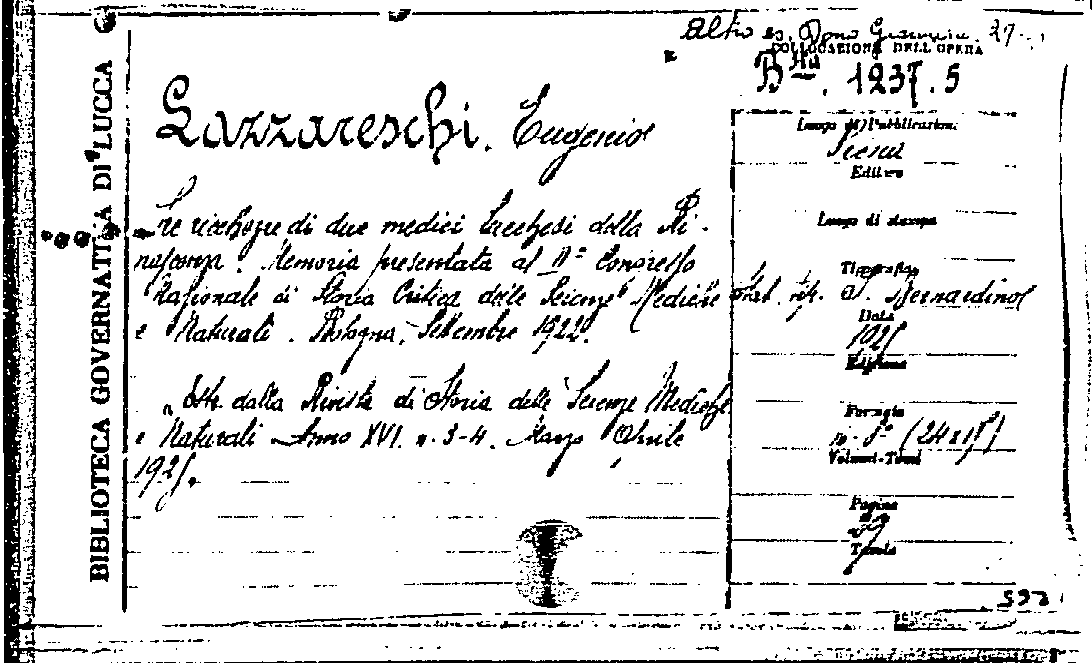 Altro es. Dono Giannini. 27
COLLOCAZIONE DELL'OPERA
Bta. 1937.5
BIBLIOTECA GOVERNATIVA DI LUCCA
Lazzareschi. Eugenio
Le ricchezze di due medici Lucchesi della Ri-
nascenza. Memoria presentata al IIº Congresso
Nazionale di Storia Critica delle Scienze Mediche
e Naturali. Bologna, Settembre 1922.
Estr. dalla Rivista di Storia delle Scienze Mediche
e Naturali Anno XVI. n. 3-4. Marzo Aprile
1925.
Luogo di Pubblicazion.
Siena
Editore
Luogo di stampa
Tipografia
Stab. S. Bernardino
Data
1925
Edizione
Formato
in-8º (24x15)
Volumi-Tomi
Pagine
Tavole
532